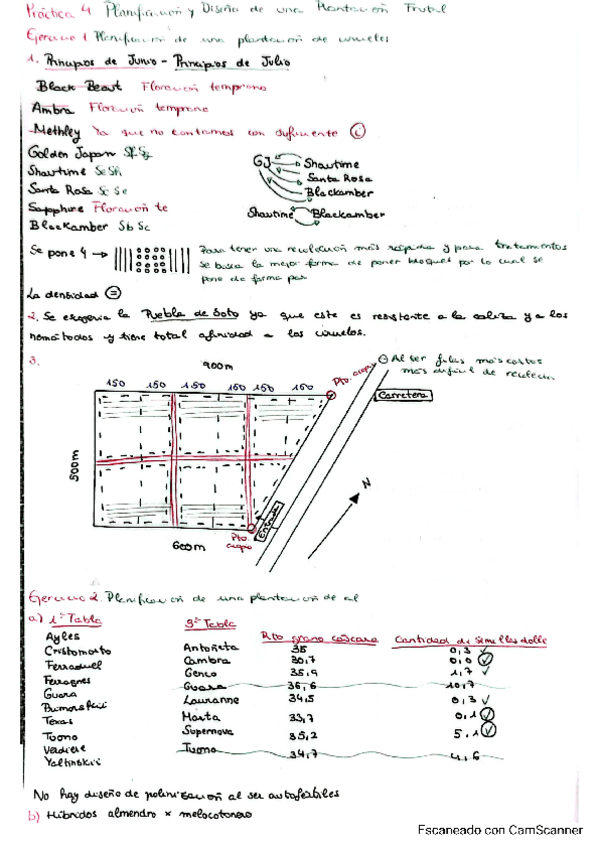 Práctica 4 Planificación y Diseño de una Plantación Frutal
Ejercicio 1 Planificación de una plantación de ciruelos
1. Principios de Junio - Principios de Julio
Black Beaut Floración temprano
Ambra Floración temprano
Methley Ya que no contamos con
Golden Japan
Showtime
Santa Rosa Sc Se
Sapphire Floración te
Blackamber Sb Sc
GJ
Showtime
Santa Rosa
Blackamber
Showtime Blackamber
Se pone 4 → Para tener una recolección más rápida y para tratamientos
se busca la mejor forma de poner bloques por lo cual se
pone de forma par
La densidad =
2. Se escogería la Puebla de Soto ya que este es resistente a la caliza y a los
nemátodos y tiene total afinidad a los ciruelos.
3.
900m
Al ser filas más cortas
más difícil de recolectar
150 150 150 150 150 150
Pto. acopio
Carretera
500m
N
Entrada
Pto. acopio
600m
Ejercicio 2. Planificación de una plantación de al
a) 1ª Tabla
Ayles
Cristomorto
Ferraduel
Ferragnes
Guara
Texas
Tuono
Yaltinskii
3ª Tabla
Antoñeta
Cambra
Genco
Guara
Lauranne
Marta
Supernova
Tuono
Rto grano cáscara
35
30,7
35,9
36,6
34,5
33,7
35,2
34,7
Cantidad de semillas doble
0,3 ✓
0,0 ✓
1,7 ✓
10,7
0,3 ✓
0,1 ✓
5,1 ✓
4,6
No hay diseño de polinización al ser autofértiles
b) Híbridos almendro x melocotonero
Escaneado con CamScanner